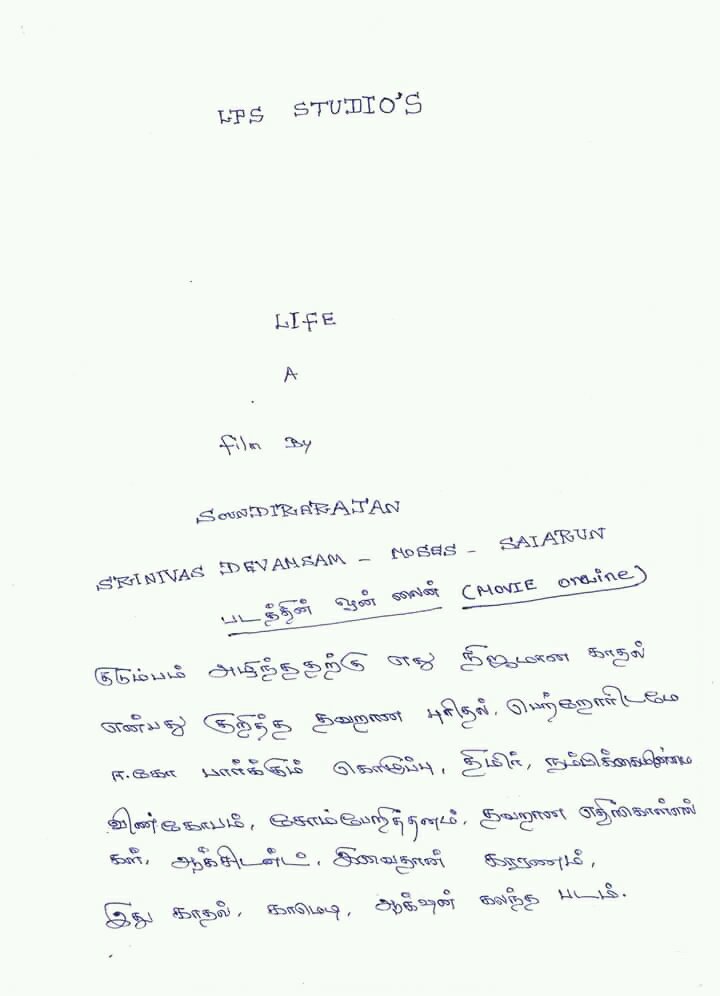 LPS STUDIO'S
LIFE
A
film By
SOUNDIRARAJAN
SRINIVAS DEVAMSAM - MOSES - SAIARUN
படத்தின் ஒன் லைன் (MOVIE Online)
குடும்பம் அழிந்ததற்கு எது நிஜமான காதல்
என்பது குறித்த தவறான புரிதல், பெற்றோரிடமே
ஈ.கோ பார்க்கும் கொழுப்பு, திமிர், நம்பிக்கையின்மை
வீண்கோபம், சோம்பேறித்தனம், தவறான எதிர்கொள்ளல்
கள், ஆக்சிடன்ட், இவைதான் காரணம்,
இது காதல், காமெடி, ஆக்‌ஷன் கலந்த படம்.